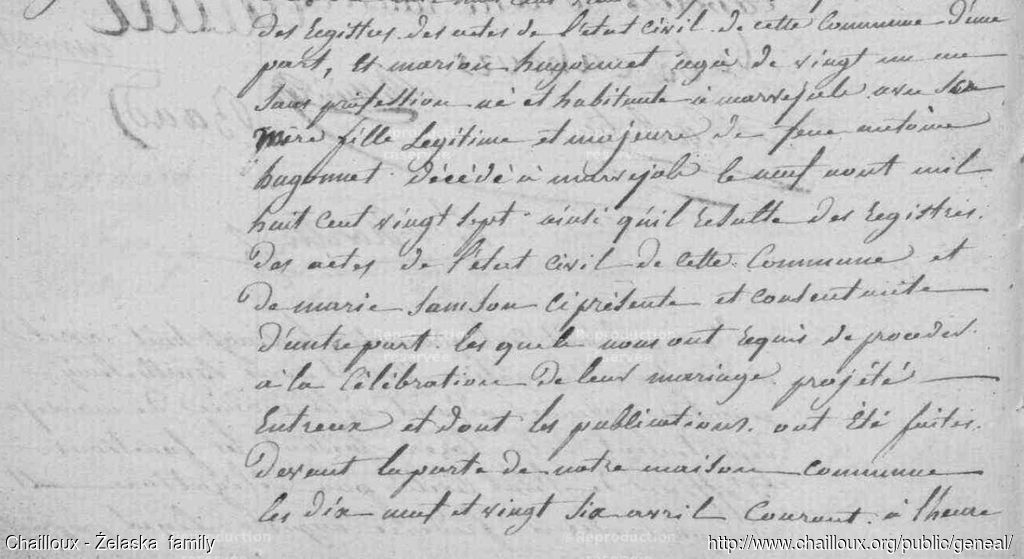 des Registres des actes de l'état civil de cette Commune d'une
part, Et marion hugonnet agée de vingt un ans
Sans profession né et habitante à marvejols avec Sa
Mère fille Legitime et majeure de feu antoine
hugonnet décédé à marvejols le neuf aout mil
huit cent vingt Sept ainsi qu'il Résulte des Registres
des actes de l'état civil de cette Commune et
De marie Samson ci présente et consentente
D'autre part les quels nous ont Requis de proceder
a la Célébration De leur mariage projété
Entreux et dont les publications ont Été faites
Devant la porte de notre maison commune
les dix neuf et vingt Six avril Courant à l'heure
Reproduction
réservée
Reproduction
réservée
Chailloux - Żelaska family
http://www.chailloux.org/public/geneal/